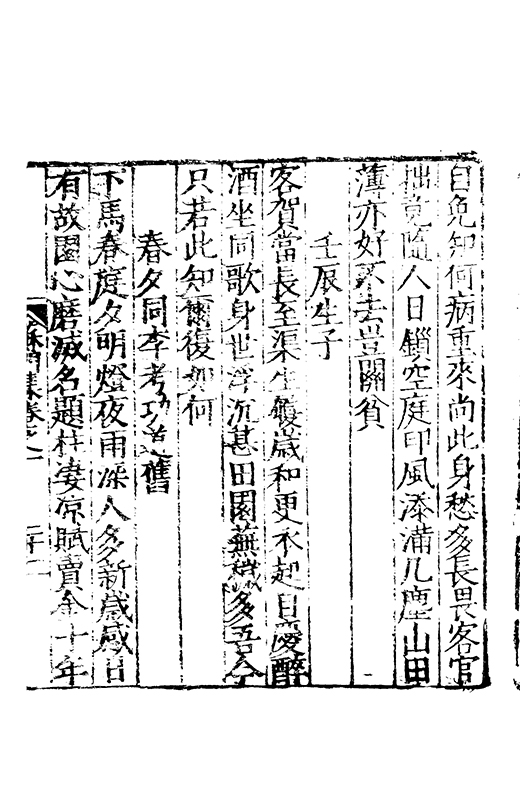 自免知何病重來尚此身愁多長畏客官
拙免隨人日鎖空庭印風添滿几塵山田
薄亦好不去豈關貧
壬辰生子
客賀當長至渠生饒歲和更承起自慶醉
酒坐同歌身世浮沉甚田園蕪穢多吾今
只若此知爾復如何
春夕同李考功話舊
下馬春庭夕明燈夜雨深人多新歲感日
有故園心磨滅名題柱淒涼賦賣金十年
蘇門集卷之